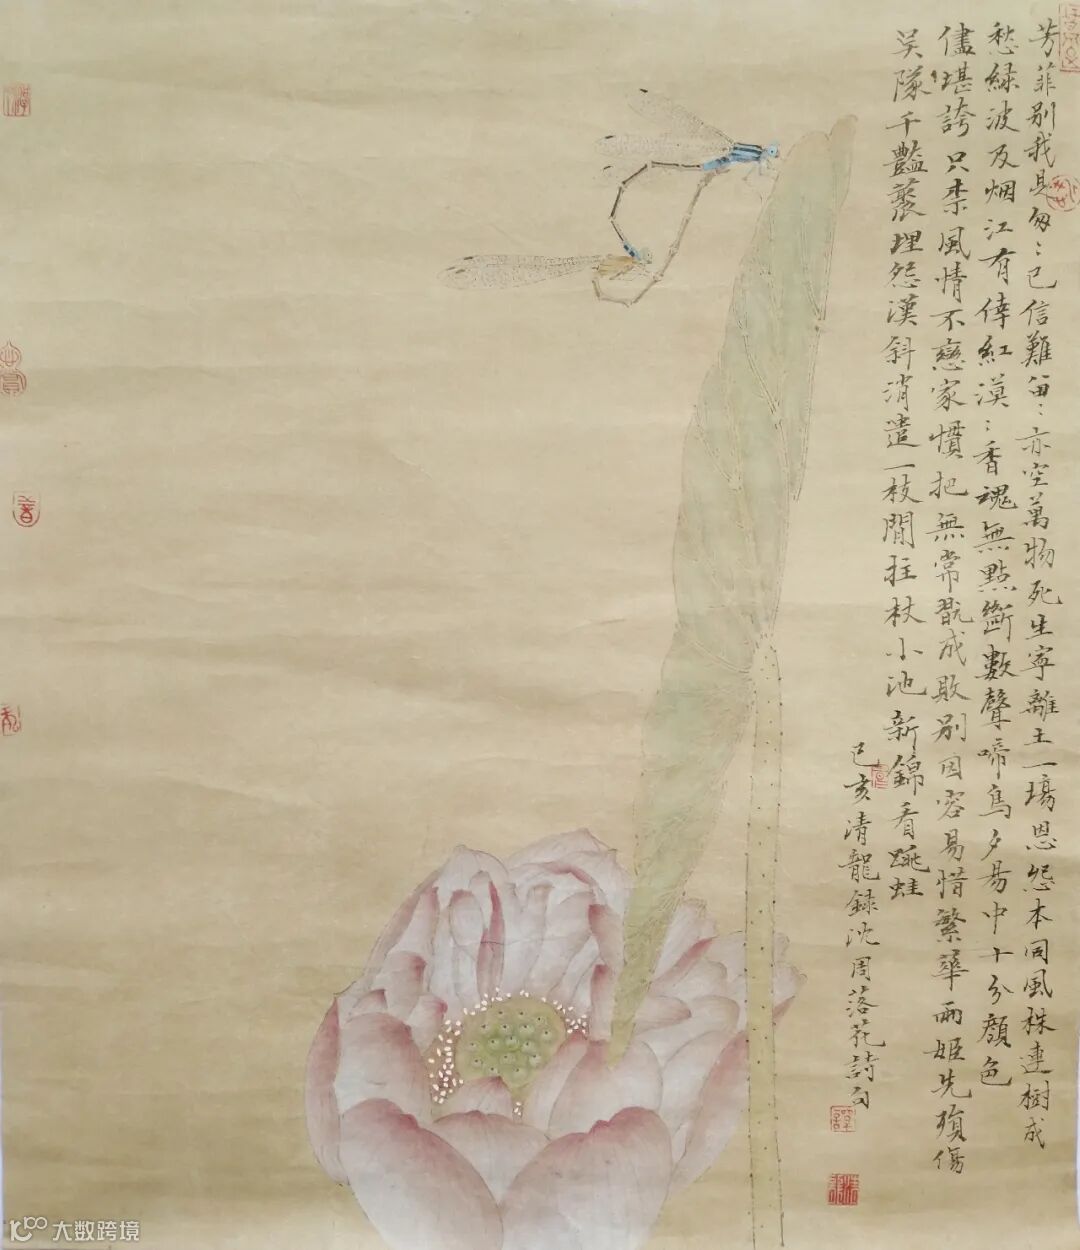 芳菲別我是匆〻已信難留〻亦空萬物死生寧離土一場恩怨本同風株連樹成
愁綠波及烟江有倖紅漠〻香魂無點斷數聲啼鳥夕昜中十分顏色
儘堪誇只柰風情不戀家慣把無常翫成敗別因容易惜繁華兩姬先殞傷
吴隊千艷叢埋怨漢斜消遣一枝閒拄杖小池新錦看跳蛙
己亥清龍錄沈周落花詩句
大数跨境